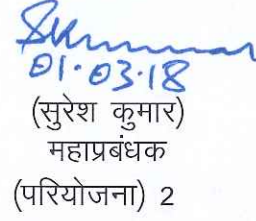 Skumar
01.03.18
(सुरेश कुमार)
महाप्रबंधक
(परियोजना) 2